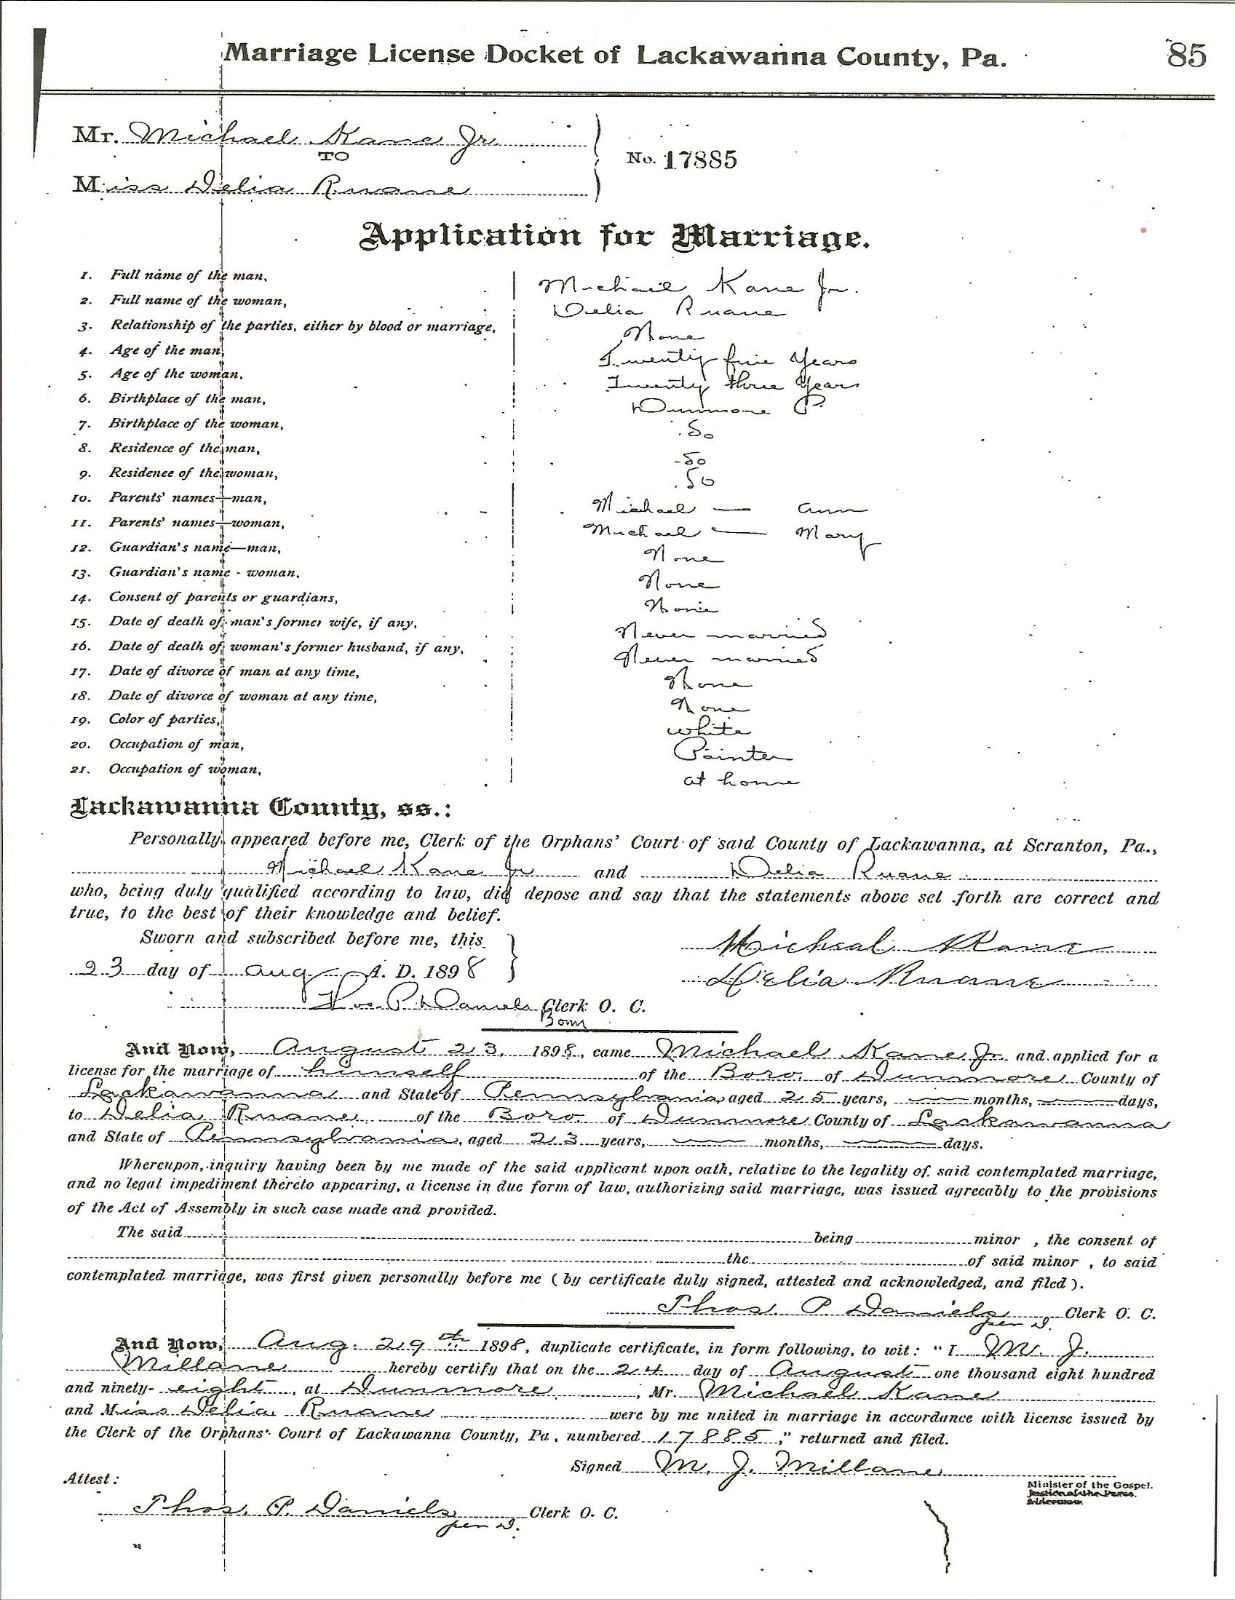 Marriage License Docket of Lackawanna County, Pa. 85
Mr. Michael Kane Jr.
TO
No. 17885
Miss Delia Ruane
Application for Marriage.
1. Full name of the man, Michael Kane Jr.
2. Full name of the woman, Delia Ruane
3. Relationship of the parties, either by blood or marriage, None
4. Age of the man, Twenty five Years
5. Age of the woman, Twenty three Years
6. Birthplace of the man, Dunmore P.
7. Birthplace of the woman, Do
8. Residence of the man, Do
9. Residence of the woman, Do
10. Parents' names—man, Michael — Ann
11. Parents' names—woman, Michael — Mary
12. Guardian's name—man, None
13. Guardian's name - woman, None
14. Consent of parents or guardians, None
15. Date of death of man's former wife, if any, Never married
16. Date of death of woman's former husband, if any, Never married
17. Date of divorce of man at any time, None
18. Date of divorce of woman at any time, None
19. Color of parties, white
20. Occupation of man, Painter
21. Occupation of woman, at home
Lackawanna County, ss.:
Personally appeared before me, Clerk of the Orphans' Court of said County of Lackawanna, at Scranton, Pa.,
Michael Kane Jr and Delia Ruane
who, being duly qualified according to law, did depose and say that the statements above set forth are correct and
true, to the best of their knowledge and belief.
Sworn and subscribed before me, this
23 day of Aug A. D. 1898
Micheal Kane
Delia Ruane
Thos P Daniels Clerk O. C.
And Now, August 23, 1898, came Michael Kane Jr. and applied for a
license for the marriage of himself of the Boro. of Dunmore County of
Lackawanna and State of Pennsylvania aged 25 years, — months, — days,
to Delia Ruane of the Boro. of Dunmore County of Lackawanna
and State of Pennsylvania, aged 23 years, — months, — days.
Whereupon, inquiry having been by me made of the said applicant upon oath, relative to the legality of said contemplated marriage,
and no legal impediment thereto appearing, a license in due form of law, authorizing said marriage, was issued agreeably to the provisions
of the Act of Assembly in such case made and provided.
The said being minor , the consent of
the of said minor , to said
contemplated marriage, was first given personally before me (by certificate duly signed, attested and acknowledged, and filed).
Thos. P Daniels Clerk O. C.
per D.
And Now, Aug. 29th 1898, duplicate certificate, in form following, to wit: "I M. J.
Millane hereby certify that on the 24 day of August one thousand eight hundred
and ninety- eight, at Dunmore, Mr. Michael Kane
and Miss Delia Ruane were by me united in marriage in accordance with license issued by
the Clerk of the Orphans' Court of Lackawanna County, Pa., numbered 17885," returned and filed.
Signed M. J. Millane
Minister of the Gospel.
Justice of the Peace.
Alderman.
Attest:
Thos. P. Daniels Clerk O. C.
per D.